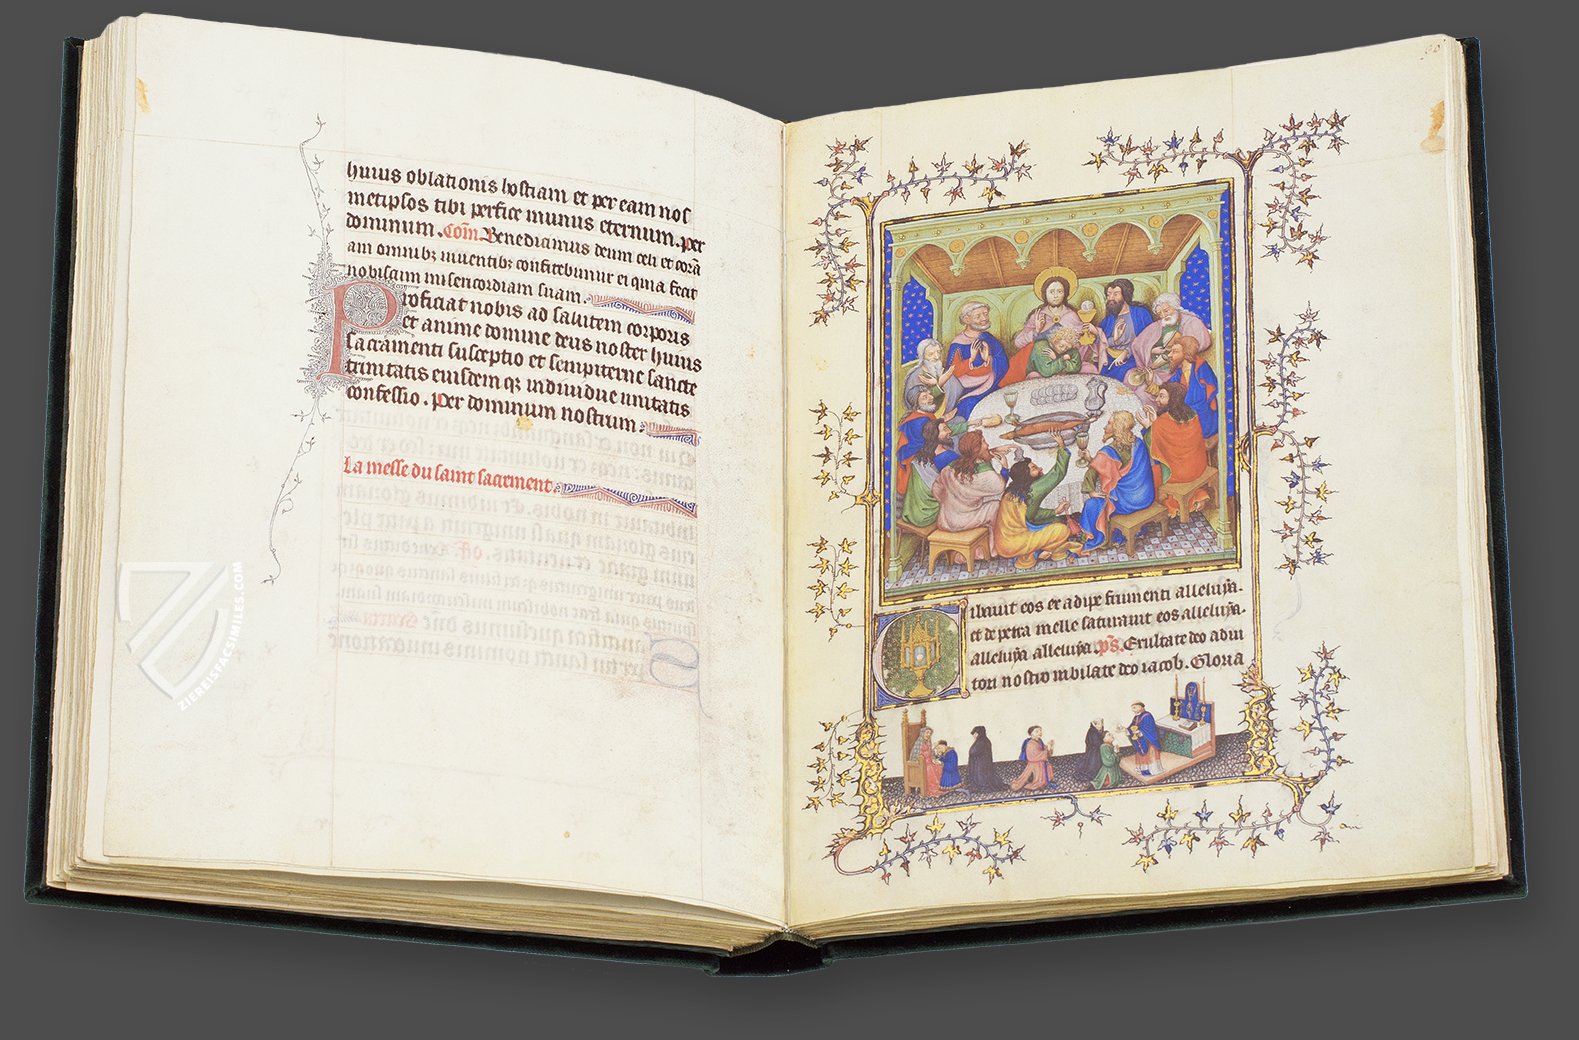 huius oblationis hostiam et per eam nos
metipsos tibi perfice munus eternum. per
dominum. Com̄. Benedicimus deum celi et corā
am omnibꝫ viuentibꝫ confitebimur ei quia fecit
nobiscum misericordiam suam.
Proficiat nobis ad salutem corporis
et anime domine deus noster huius
sacramenti susceptio et sempiterne sancte
trinitatis eiusdem qꝫ indiuidue unitatis
confessio. Per dominum nostrum.
La messe du saint sacrement
ZIEREISFACSIMILES.COM
Cibauit eos ex adipe frumenti alleluya.
et de petra melle saturauit eos alleluya.
alleluya alleluya. p̄s. Exultate deo adiu
tori nostro iubilate deo iacob. Gloria